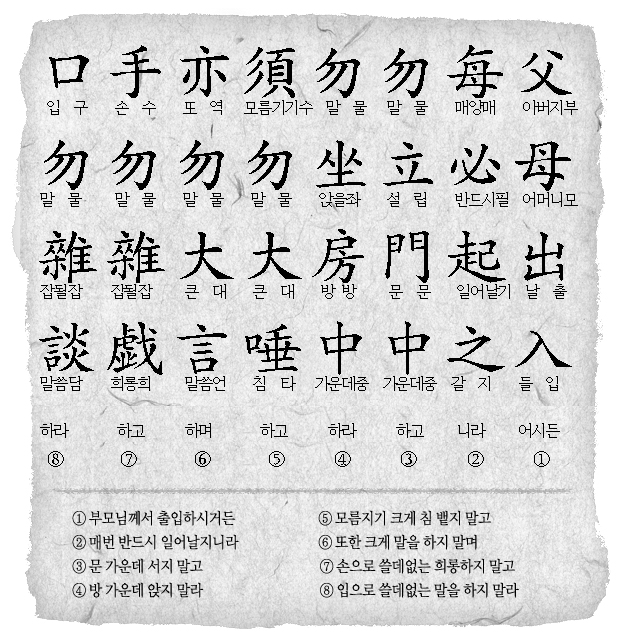 口 手 亦 須 勿 勿 每 父
입 구 손 수 또 역 모름기기수 말 물 말 물 매양매 아버지부
勿 勿 勿 勿 坐 立 必 母
말 물 말 물 말 물 말 물 앉을좌 설 립 반드시필 어머니모
雜 雜 大 大 房 門 起 出
잡될잡 잡될잡 큰 대 큰 대 방 방 문 문 일어날기 날 출
談 戯 言 唾 中 中 之 入
말씀담 희롱희 말씀언 침 타 가운데중 가운데중 갈 지 들 입
하라 하고 하며 하고 하라 하고 니라 어시든
⑧ ⑦ ⑥ ⑤ ④ ③ ② ①
① 부모님께서 출입하시거든
② 매번 반드시 일어날지니라
③ 문 가운데 서지 말고
④ 방 가운데 앉지 말라
⑤ 모름지기 크게 침 뱉지 말고
⑥ 또한 크게 말을 하지 말며
⑦ 손으로 쓸데없는 희롱하지 말고
⑧ 입으로 쓸데없는 말을 하지 말라